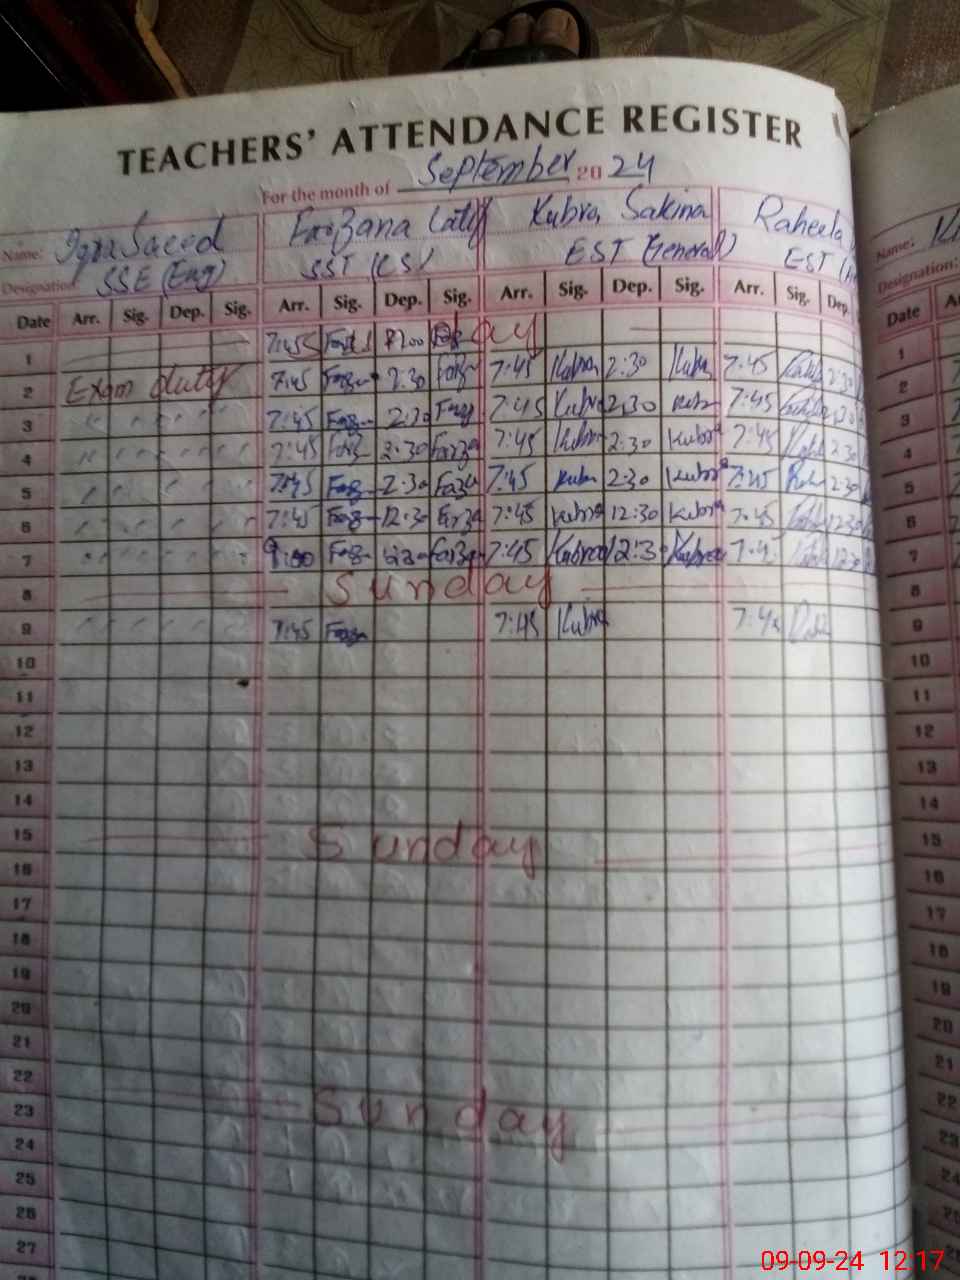 TEACHERS' ATTENDANCE REGISTER
For the month of September 2024
Name: Iqra Saeed Farzana Latif Kubra Sakina Raheela
Designation: SSE (Eng) SST (CS) EST (General) EST
Name:
Designation:
Date Arr. Sig. Dep. Sig. Arr. Sig. Dep. Sig. Arr. Sig. Dep. Sig. Arr. Sig. Dep. Date
1 7:45 8:00 ay 1
2 Exam duty 7:45 Faz 2:30 Faz 7:45 Kubra 2:30 Kubra 7:45 2:30 2
3 " " " " 7:45 Faz 2:30 7:45 Kubra 2:30 Kubra 7:45 2:30 3
4 " " " " 7:45 Faz 2:30 Farza 7:45 Kubra 2:30 Kubra 7:45 2:30 4
5 " " " " 7:45 Faz 2:30 Faza 7:45 Kubra 2:30 Kubra 7:45 2:30 5
6 " " " " 7:45 Faz 12:30 Farza 7:45 Kubra 12:30 Kubra 7:45 12:30 6
7 " " " " 9:00 Faz Farza 7:45 Kubra 12:30 Kubra 7:45 12:30 7
8 Sunday 8
9 " " " " 7:45 Faza 7:45 Kubra 7:45 9
10 10
11 11
12 12
13 13
14 14
15 Sunday 15
16 16
17 17
18 18
19 19
20 20
21 21
22 22
23 Sunday 23
24 24
25 25
26
27
09-09-24 12:17